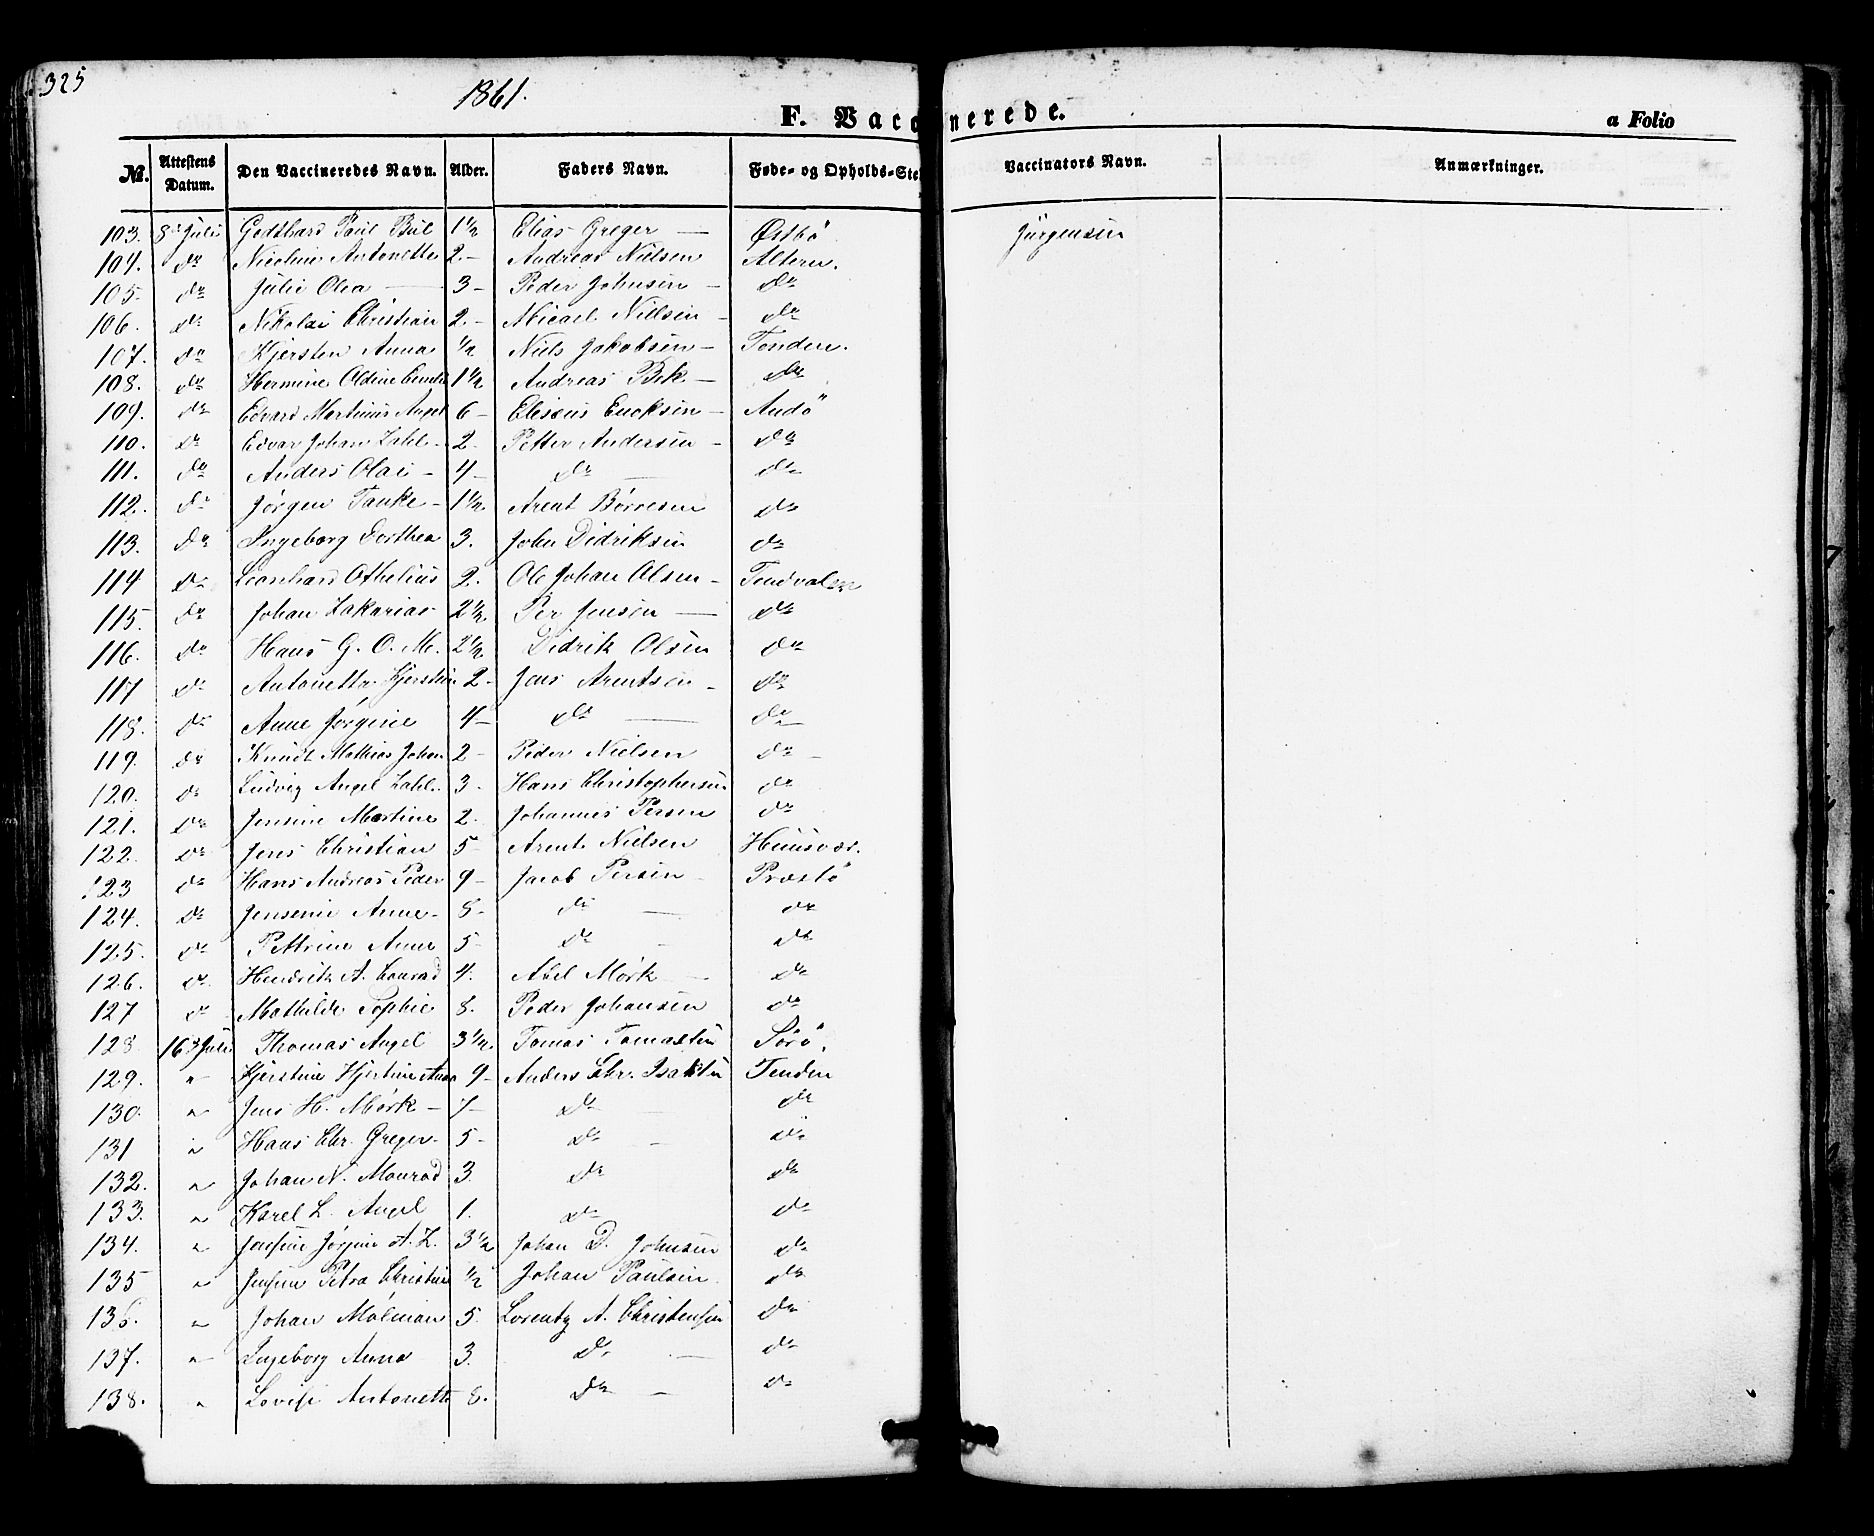 325
1861.
F. Vaccinerede.
a Folio
No. Attestens Datum. Den Vaccineredes Navn. Alder. Faders Navn. Føde- og Opholds-Ste Vaccinators Navn. Anmærkninger.
103. 8de Juli Godthard Paul Bul 1½ Elias Greger — Østbö Jürgensen
104. do Nicoline Antonette 2.- Andreas Nielsen Altern.
105. do Julie Olea — 3- Peder Johnsen - do
106. do Nikolai Christian 2.- Micael Nielsen - do
107. do Kjersten Anna ½ Niels Jakobsen - Tenden.
108. do Hermine Oldine 1½ Andreas Bek - do
109. do Edvard Martinus Angel 6- Eliseus Enoksen - Andö
110. do Edvar Johan Zahl - 2. Petter Andersen - do
111. do Anders Olai - 4- do — do
112. do Jørgen Tanke - 1½. Arent Børresen do
113. do Ingeborg Dorthea 3. John Didriksen do
114 do Leonhard Othelius 2. Ole Johan Olsen - Tendvalen
115. do Johan Zakarias 2½. Per Jensen — do
116. do Hans G. O. M. 2½. Didrik Olsen do
117 do Antonette Kjerstine 2- Jens Arentsen - do
118. do Anne Jørgine 4- do — do
119. do Knudt Mathias Johan 2- Peder Nielsen do -
120. do Ludvig Angel Zahl. 3. Hans Christophersen do
121. do Jensine Martine 2. Johannes Persen do
122. do Jens Christian 5- Arent Nielsen Huusvær.
123 do Hans Andreas Peder 9- Jacob Persen - Præstö
124. do Jensenie Anne - 8- do — do
125. do Pettrine Anne 5- do - do
126. do Hendrik A. Conrad 4. Abel Mörk — do
127 do Mathilde Sophie 8. Peder Johansen do
128. 16de Juli Thomas Angel 3½. Tomas Tomassen Sörö.
129. " Kjerstine Hjertine Anna 9- Anders Chr. Isaksen Tenden
130. " Jens H. Mörk - 7- do - do
131 " Hans Chr. Greger - 5- do - do
132. " Johan N. Monrad 3. do do
133. " Karel L. Angel 1. do do
134. " Jensine Jørgine A. Z. 3½ Johan D. Johnsen do
135 " Jensine Petra Christine ½ Johan Paulsen do
136. " Johan Molman 5. Lorentz A. Christensen do
137. " Ingeborg Anna 3. do — do
138. " Lovise Antonette 8. do - do